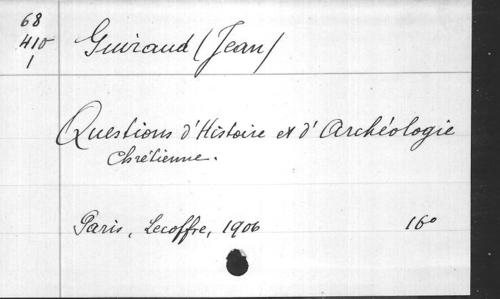 68
410
1
Guiraud (Jean)
Questions d'Histoire et d'Archéologie
Chrétienne.
Paris, Lecoffre, 1906
16°